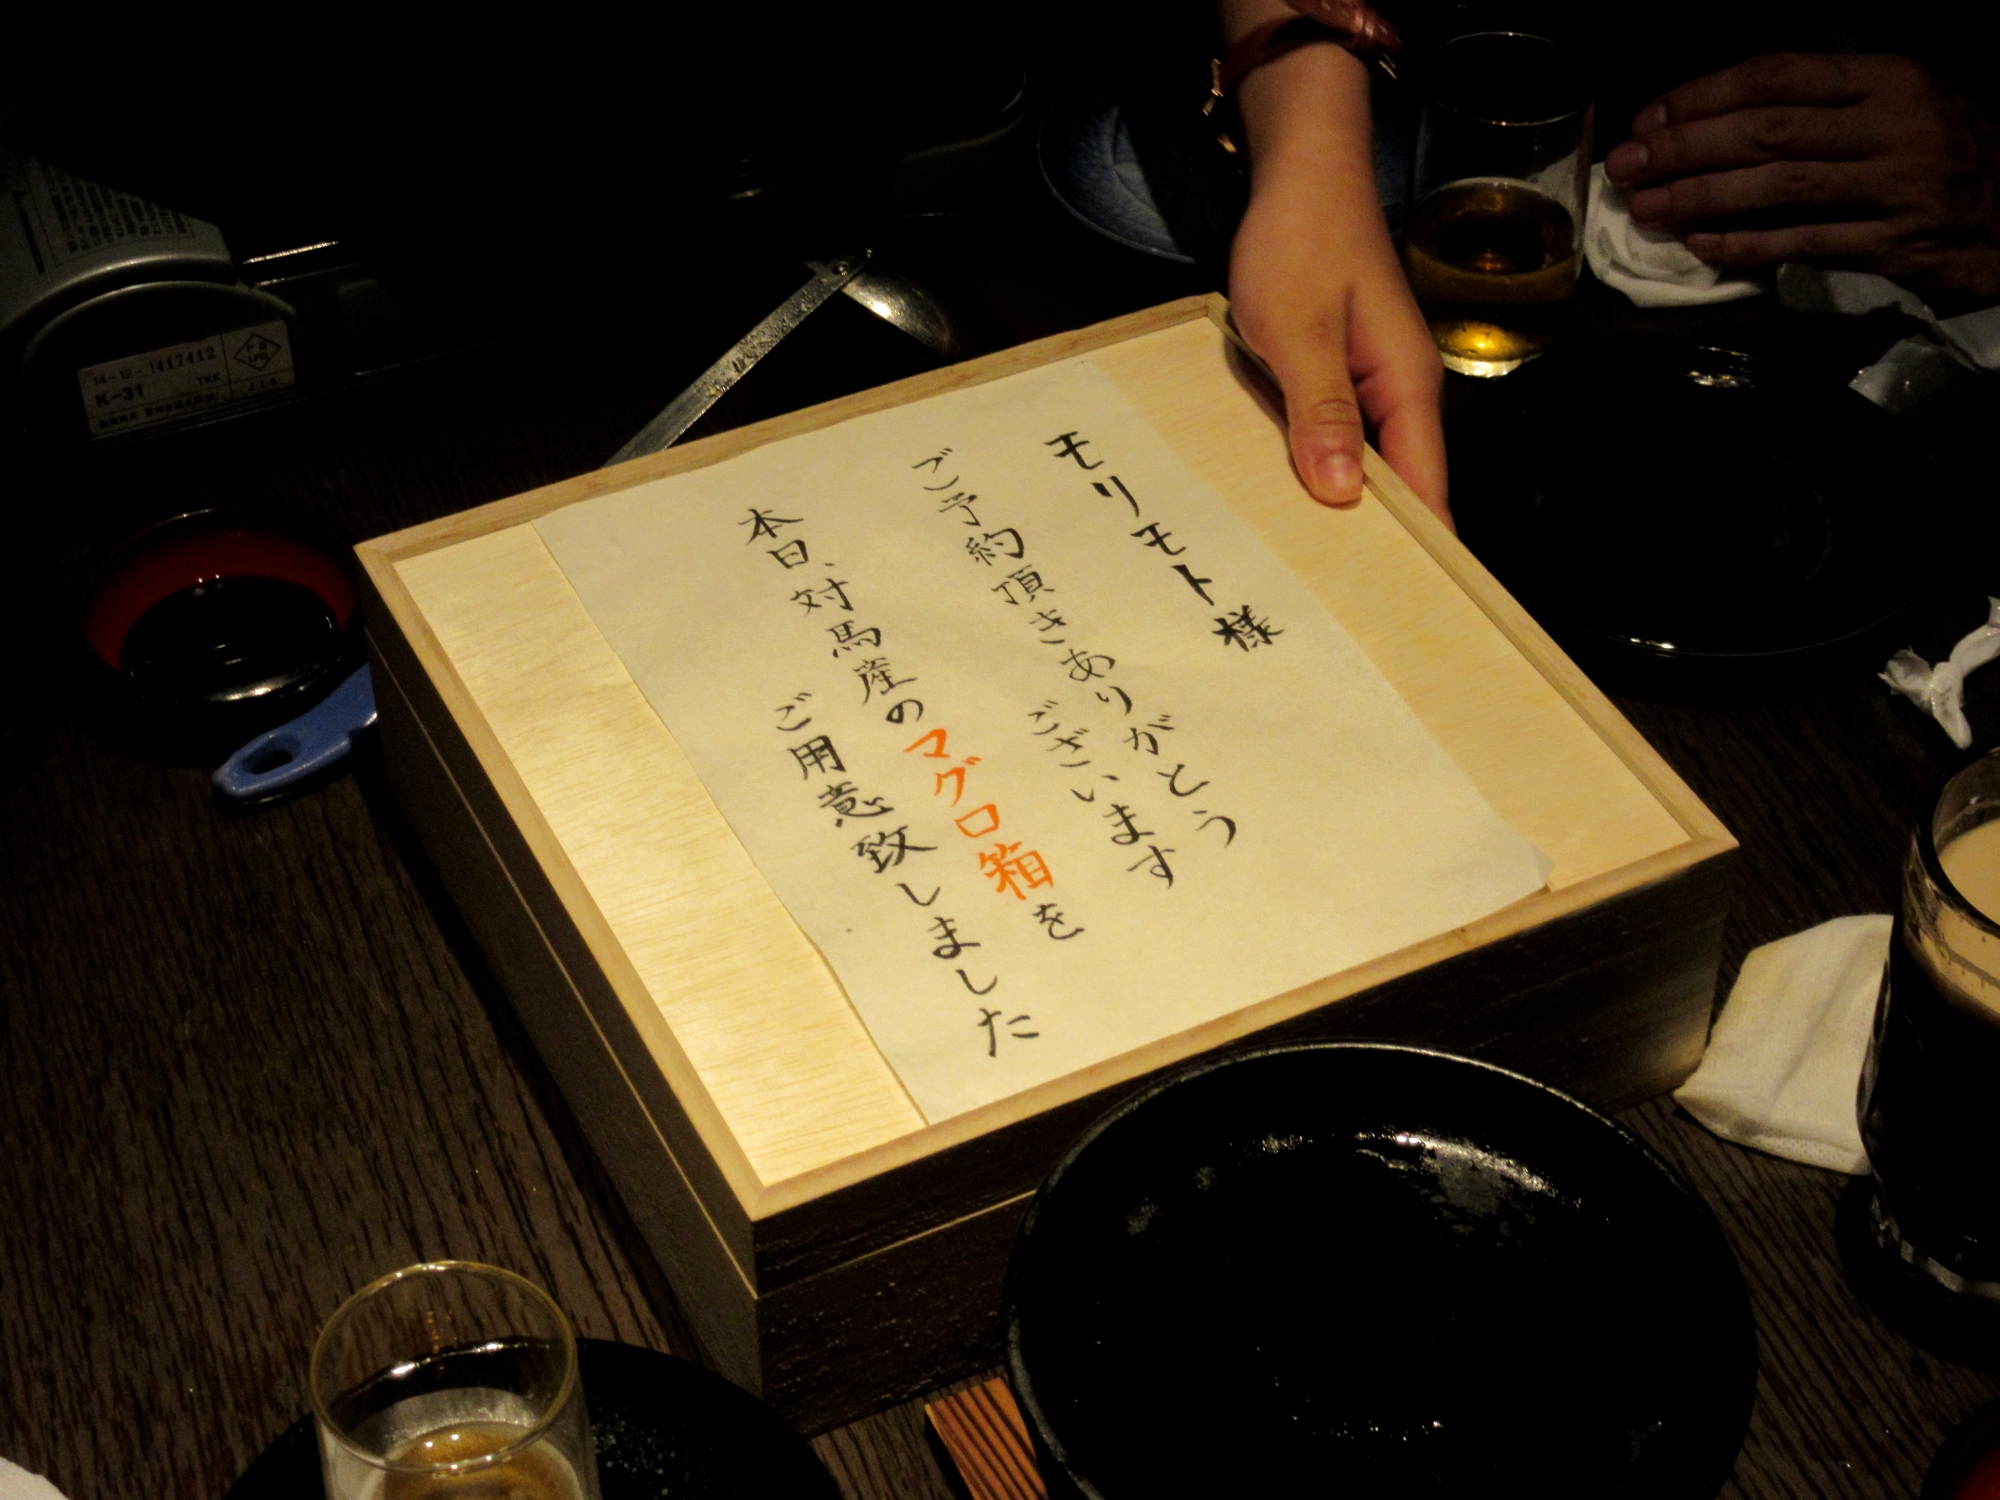 モリモト様
ご予約頂きありがとう
ございます
本日、対馬産のマグロ箱を
ご用意致しました
14-12-1417412
K-31 TKK
JIA